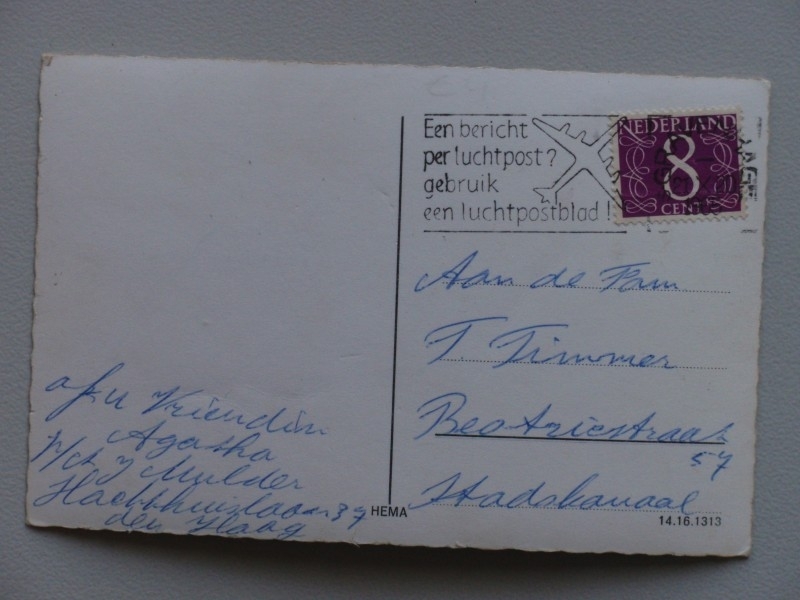 Een bericht
per luchtpost?
gebruik
een luchtpostblad!
NEDERLAND
8
CENT
Aan de Fam
T. Timmer
Beatrixstraat
57
Stadskanaal
Vriendin
Agatha
Mulder
37
den Haag
HEMA
14.16.1313